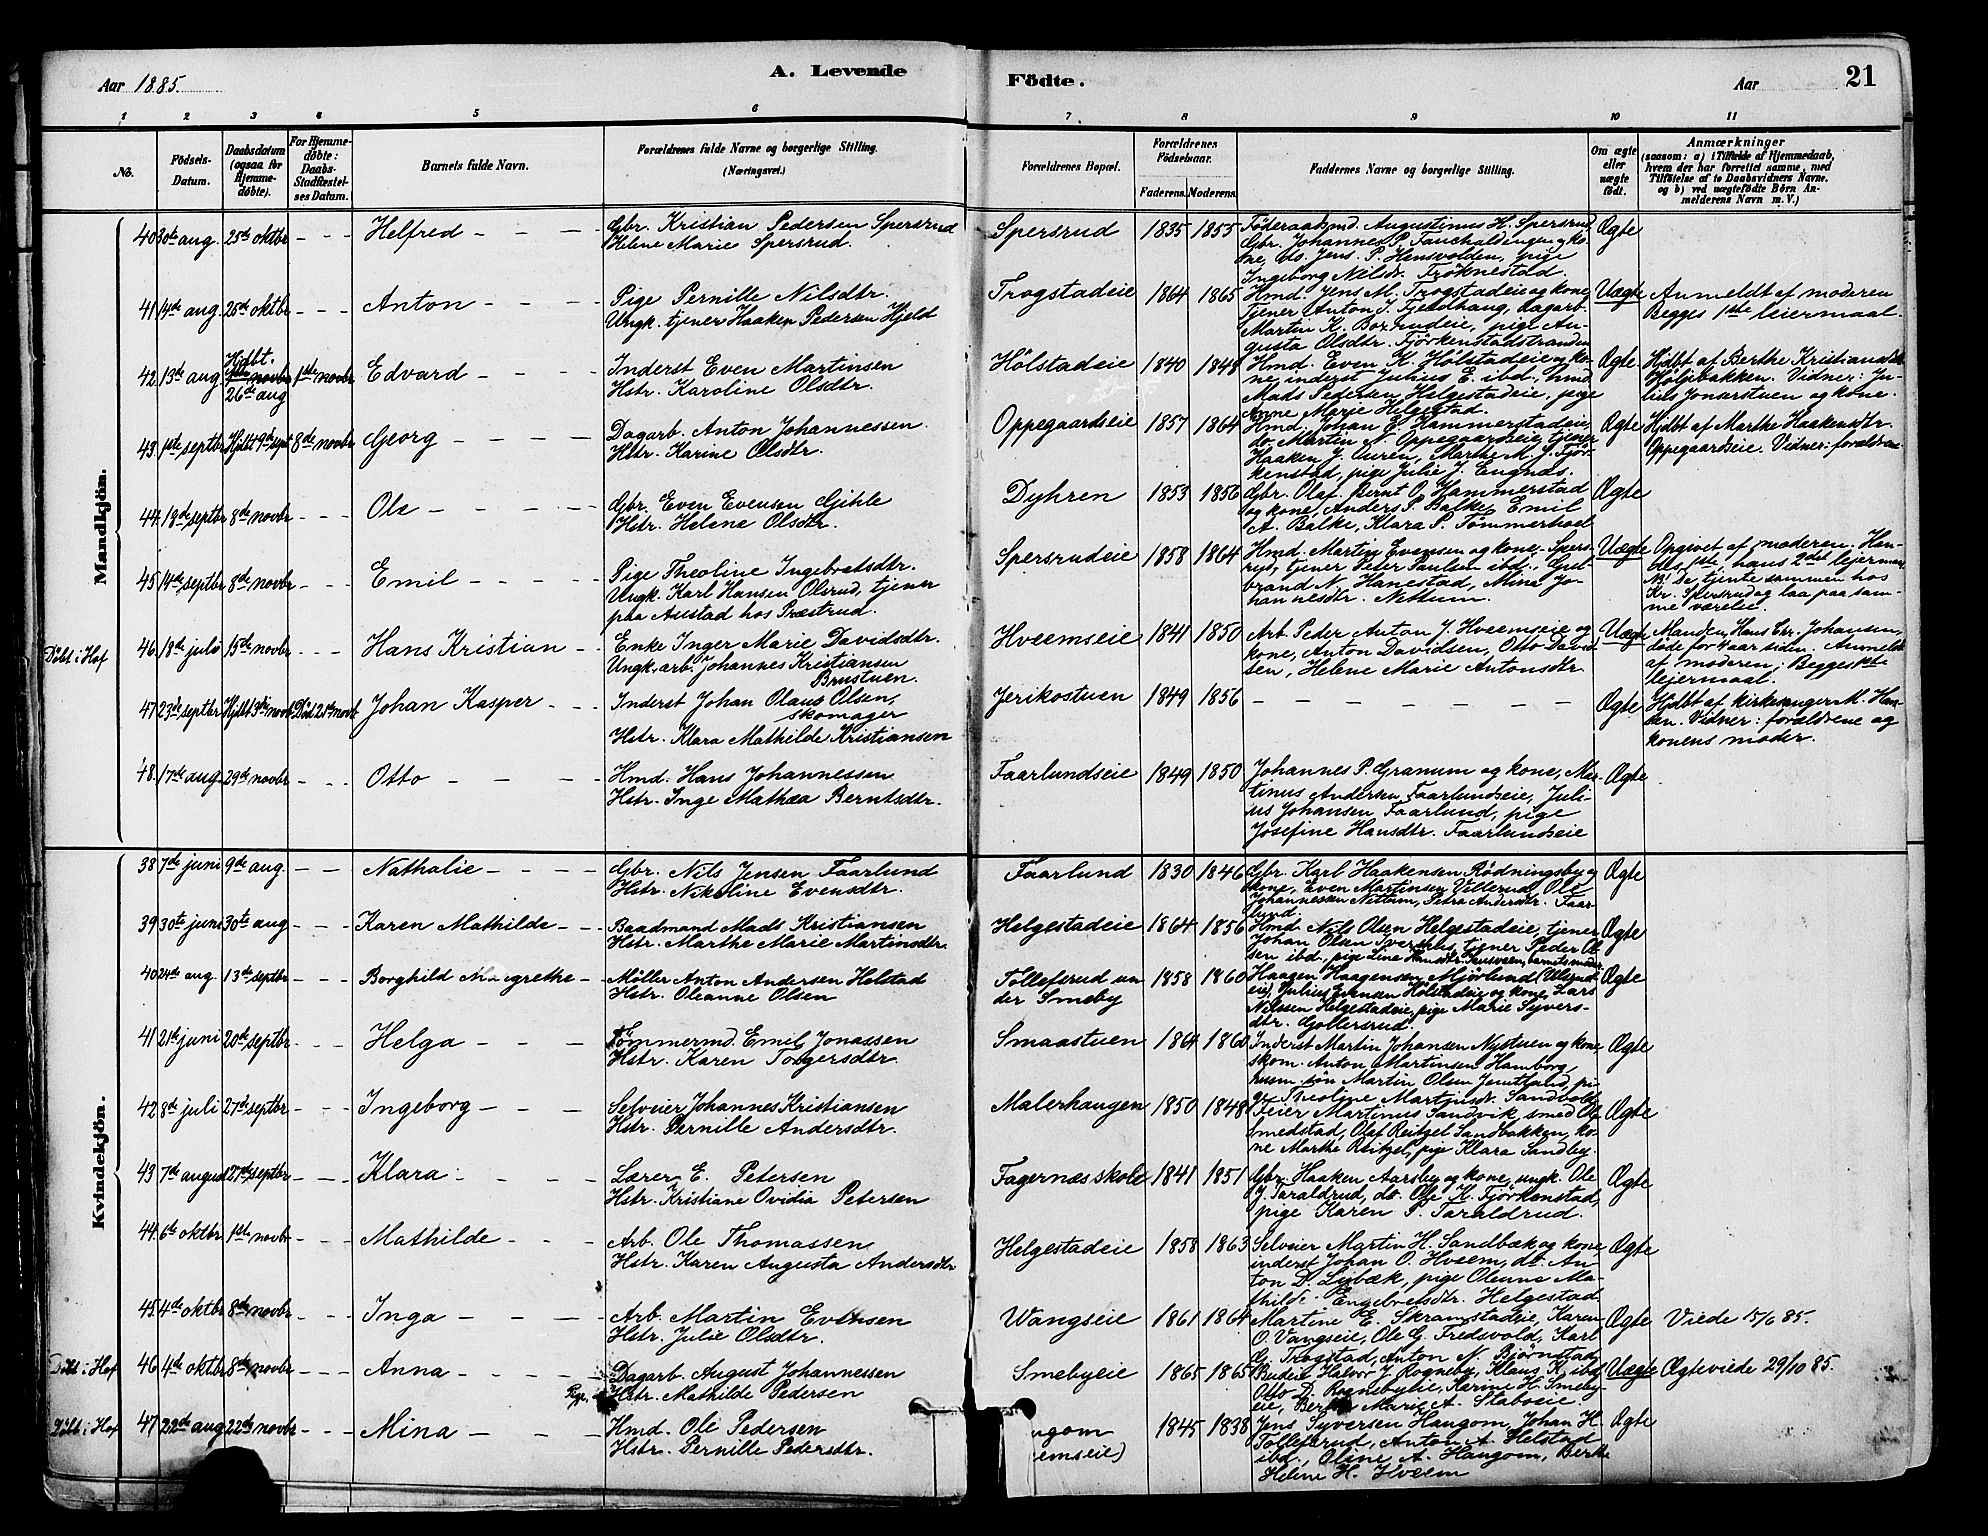 Aar 1885.
A. Levende Födte.
Aar
21
1 2 3 4 5 6 7 8 9 10 11
No.
Födsels-Datum.
Daabsdatum (ogsaa for Hjemme-döbte).
For Hjemme-döbte: Daabs-Stadfæstelses Datum.
Barnets fulde Navn.
Forældrenes fulde Navne og borgerlige Stilling. (Næringsvei.)
Forældrenes Bopæl.
Forældrenes Födselsaar.
Faderens. Moderens.
Faddernes Navne og borgerlige Stilling.
Om ægte eller uægte födt.
Anmærkninger
(saasom: a) i Tilfælde af Hjemmedaab, hvem der har forrettet samme, med Tilföielse af to Daabsvidners Navne, og b) ved uægtefödte Börn Anmelderens Navn m. V.)
Mandkjön.
40 30te aug. 25de oktbr - - - Helfred - - - Gbr. Kristian Pedersen Spersrud
Helene Marie Spersrud.
Spersrud 1835 1855 Föderaadsmd. Augustinus H. Spersrud,
Gbr. Johannes P. Fauchaldengen og ko-
ne, do. Jens P. Hensvolden, pige
Ingeborg Nilsdr. Tröknestad.
Ægte
41 14de aug 25de oktbr - - - Anton - - - Pige Pernille Nilsdtr.
Ungk. tjener Haaken Pedersen Hjeld
Trogstadeie 1864 1865 Hmd. Jens M. Trogstadeie og kone,
Tjener Anton S. Fjeldhaug, dagarb.
Martin K. Borrudeie, pige Au-
gusta Olsdtr. Fjörkenstadstranden
Uægte Anmeldt af moderen
Begges 1ste leiermaal.
42 13de aug Hjdbt. 26de aug 1ste novbr Edvard - - - Inderst Even Martinsen
Hstr. Karoline Olsdtr.
Hölstadeie 1840 1848 Hmd. Even K. Hölstadeie og ko-
ne, inderst Julius E. ibd., hmd.
Mads Pedersen Helgestadeie, pige
Anne Marie Helgestad.
Ægte Hjdbt af Berthe Kristiansdtr
Höljibakken. Vidner: Ju-
lius Jonsrstuen og kone.
43 1ste septbr Hjdbt 9de sept 8de novbr Georg - - - - Dagarb. Anton Johannessen
Hstr. Karine Olsdtr.
Oppegaardseie 1857 1864 Hmd. Johan E. Hammerstadeie,
do. Martin N. Oppegaardseie, tjener
Haaken J. Ouren, Marthe M. J. Fjör-
kenstad, pige Julie J. Engnæs.
Ægte Hjdbt af Marthe Haakensdtr.
Oppegaardseie. Vidner: forældrene
44 18de septbr 8de novbr - - - Ole - - - - Gbr. Even Evensen Gjihle
Hstr. Helene Olsdtr.
Dyhren 1853 1856 Gbr. Olaf Bernt O. Hammerstad
og kone, Anders P. Balke, Emil
A. Balke, Klara P. Tömmerhoel
Ægte
45 14de septbr 8de novbr - - - Emil - - - - Pige Theoline Ingebretsdtr.
Ungk. Karl Hansen Olsrud, tjener
paa Austad hos Præstrud.
Spersrudeie 1858 1864 Hmd. Martin Evensen og kone, Spers-
rud, tjener Peter Paulsen ibd., Gul-
brand N. Hanestad, Mina Jo-
hannesdtr. Nettum.
Uægte Opgivet af moderen. Hen-
des 1ste, hans 2det leiermaal
NB. De tjente sammen hos
Kr. Spersrud og laa paa sam-
me værelse.
Döbt i Hof 46 18de juli 15de novbr - - - Hans Kristian - - Enke Inger Marie Davidsdtr.
Ungk. arb. Johannes Kristiansen
Brustuen.
Hveemseie 1841 1850 Arb. Peder Anton J. Hveemseie og
kone, Anton Davidsen, Otto David-
sen, Helene Marie Antonsdtr.
Uægte Manden, Hans Chr. Johansen,
döde for 4 aar siden. Anmeldt
af moderen. Begges 1ste
leiermaal.
47 23de septbr Hjdbt 3de novbr Död 21de novbr Johan Kasper - - - Inderst Johan Olaus Olsen,
skomager
Hstr. Klara Mathilde Kristiansen
Jerikostuen 1849 1856 - - - - - - - Ægte Hjdbt af kirkesanger M. Han-
sen. Vidner: forældrene og
konens moder.
48. 17de aug 29de novbr - - - Otto - - - Hmd. Hans Johannessen
Hstr. Inge Mathea Berntsdtr.
Faarlundseie 1849 1850 Johannes P. Granum og kone, Mar-
tinus Andersen Faarlundseie, Juli-
us Johansen Faarlund, pige
Josefine Hansdtr. Faarlundseie
Ægte
Kvindekjön.
38 7de juni 9de aug. - - Nathalie - - - - Gbr. Nils Jensen Faarlund
Hstr. Nikoline Evensdtr.
Faarlund 1830 1846 Gbr. Karl Haakensen Rödningsby og
kone, Even Martinsen Villerud, Ole
Johannessen Nettum, Petra Andersdtr. Faar-
lund.
Ægte
39 30te juni 30te aug - - - Karen Mathilde - - Baadmand Mads Kristiansen
Hstr. Marthe Marie Martinsdtr.
Helgestadeie 1864 1856 Hmd. Nils Olsen Helgestadeie, tjener
Johan Olsen Sverstad, tjener Peder Ol-
sen ibd., pige Line Hansdtr.
Ægte
40 24de aug. 13de septbr - - - Borghild Margrethe - - Möller Anton Andersen Holstad
Hstr. Oleanne Olsen
Tollefsrud un-
der Smeby
1858 1860 Haagen Haagensen Mjörlund (Ullsrud-
eie) Julius Evensen Hölstadeie og kone, Lars
Nilssen Helgestadeie, pige Marie Syvers-
dtr. Gollersrud.
Ægte
41 21de juni 20de septbr - - - Helga - - - Tömmermd. Emil Jonassen
Hstr. Karen Torgersdtr
Smaastuen 1864 1860 Inderst Martin Johansen Nystuen og kone,
skom. Anton Martinsen Hamborg,
husm. sön Martin Olsen Jemtland, pi-
ge Theoline Martinsdr. Sandvold
Ægte
42 8de juli 27de septbr - - - Ingeborg - - - Selveier Johannes Kristiansen
Hstr. Pernille Andersdtr.
Malerhaugen 1850 1848 Feier Martinus Sandvik, smed Ole
Smedstad, Olaf Reitzel Sandbakken, ko-
ne Marthe Reitzel, pige Klara Sandby.
Ægte
43 7de august 27de septbr - - - Klara - - - - Lærer E. Petersen
Hstr. Kristiane Ovidia Petersen
Fagernæs skole 1841 1851 Gbr. Haaken Aarsby og kone, ungk. Ole
J. Taraldrud, do. Ole K. Fjörkenstad,
pige Karen P. Taraldrud.
Ægte
44 6te oktbr 1ste novbr - - - Mathilde - - - Arb. Ole Thomassen
Hstr. Karen Augusta Andersdtr
Helgestadeie 1858 1863 Selveier Martin H. Sandbæk og kone,
inderst Johan O. Hveem, do. An-
ton D. Lybæk, pige Oleune Ma-
thilde Engebretsdtr. Helgestad
Ægte
45 4de oktbr 8de novbr - - - Inga - - - - Arb. Martin Evensen
Hstr. Julie Olsdtr.
Wangseie 1861 1864 Martine E. Skramstadeie, Karen
O. Vangseie, Ole G. Fredsvold, Karl
G. Trogstad, Anton N. Bjørnstad
Ægte Viede 15/6 85.
Döbt i Hof 46 4de oktbr 8de novbr - - - Anna - - - - Dagarb. August Johannessen
Pige. Hstr. Mathilde Pedersen
Smebyeie 1865 1865 Halvor J. Rogneby, Klaus K. ibd,
Otto D. Rognebyeie, Karine H. Smeby-
eie, Berthe Marie A. Staboeie.
Uægte Ægteviede 29/10 85.
Döbt i Hof 47 22de aug 22de novbr Mina - - - Hmd. Ole Pedersen
Hstr. Pernille Pedersdtr.
ugom
emseie)
1845 1838 Jens Syversen Haugom, Johan H.
Tollefsrud, Anton A. Helstad
ibd., Oline A. Haugom, Berthe
Helene H. Hveem
Ægte